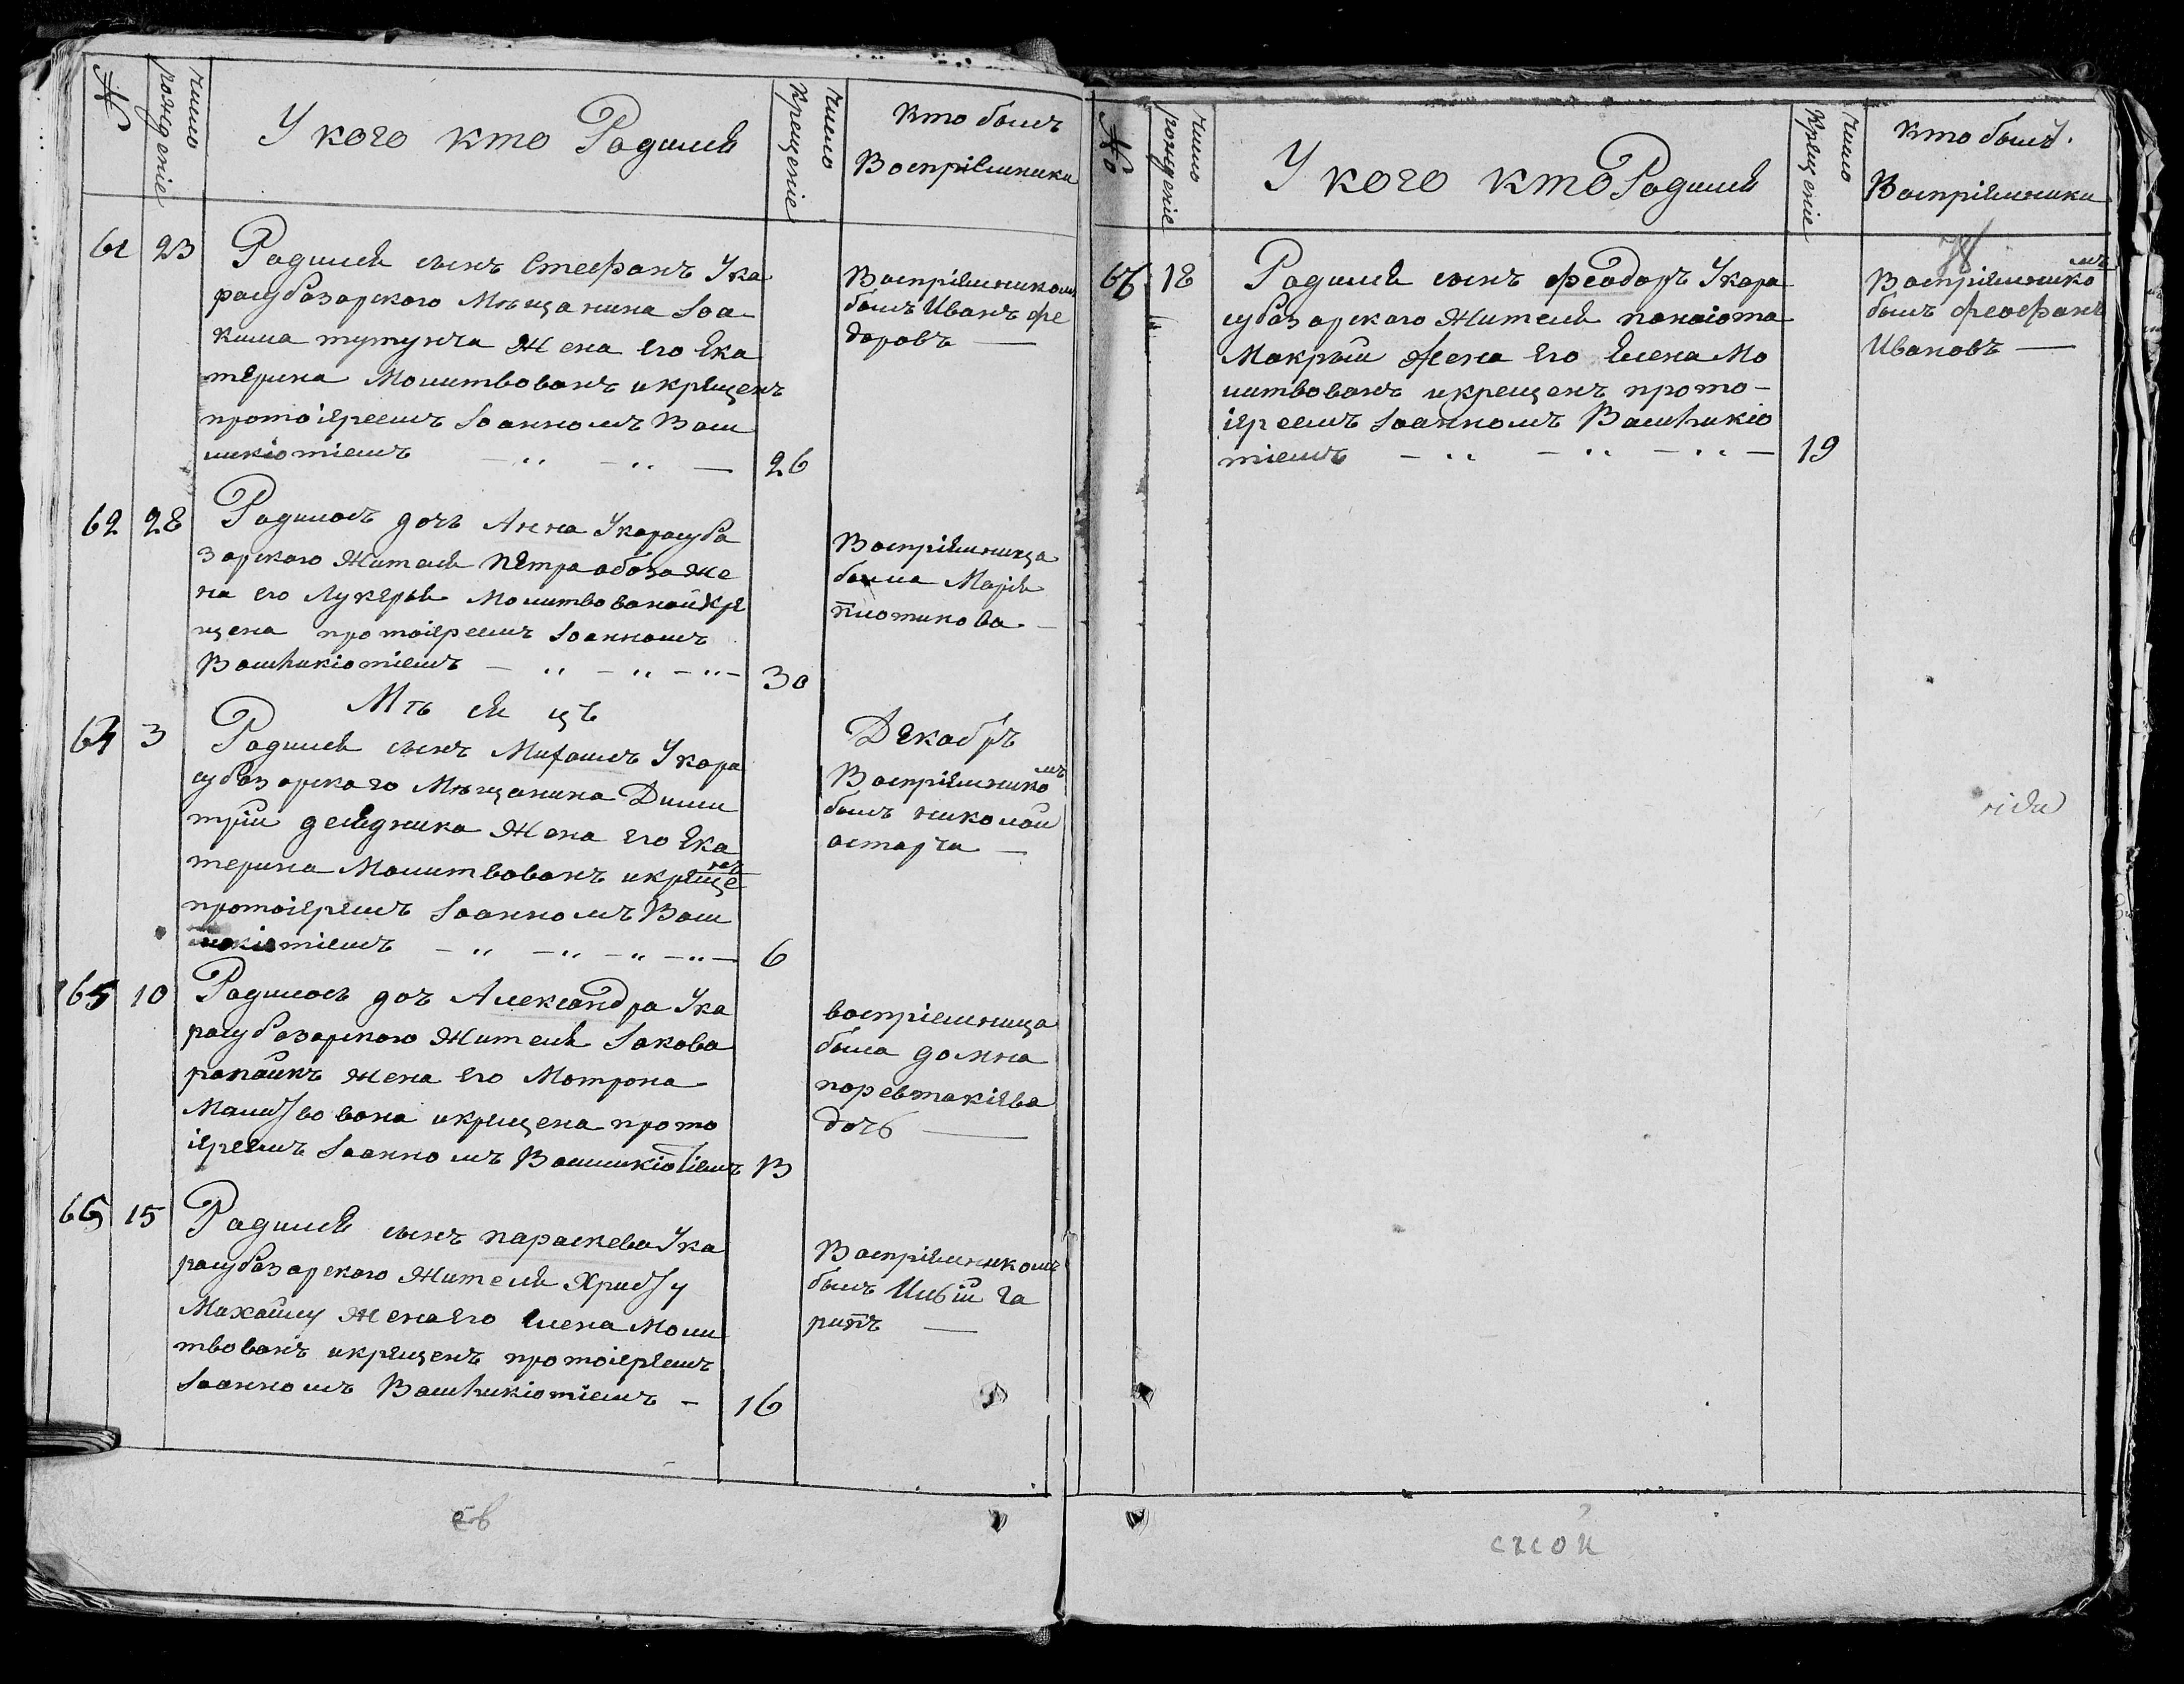 №
число рождение
У кого кто Родился
число Крещение
Кто былъ
Воспріемники
61 23 Родился сынъ Стефанъ У ка
расубазарского Мѣщанина Іоа
кима тутунча Жена его Ека
терина Молитвованъ и крещенъ
протоіереемъ Іоанномъ Ваш
шикіотіемъ 26
Воспріемникомъ
былъ Иванъ Фе
доровъ
62 28 Родилось дочъ Анна У карасуба
зарского Жителя Петра абоза Же
на его Лукерья Молитвованой Кре
щена протоіереемъ Іоанномъ
Вашhикіотіемъ 30
Воспріемница
была Марія
плотикова
Мѣ ся цъ
Декабръ
3 Родился сынъ Михаилъ У кара
субазарского Мѣщанина Дими
трій Жена его Ека
терина Молитвованъ и крещенъ
протоіеремъ Іоанномъ Ваш
шикіотіемъ 6
Воспріемникомъ
былъ николай
астарча
65 10 Родилось доч Александра У ка
расубазарского Жителя Іакова
рапайикъ жена его Мотрона
Молитвована и крещена прото
іереемъ Іоанномъ Вашшикіотіемъ 13
воспріемница
была домна
поревтакіева
дочь
15 Родился сынъ параскева У ка
расубазарского Жителя Христу
Михайлу Жена его Елена Моли
твованъ и крещенъ протоіеремъ
Іоанномъ Вашhикіотіемъ 16
Воспріемникомъ
былъ
№
число рожденіе
У кого кто Родился
число Крещеніе
кто былъ.
Воспріемники
18 Родился сынъ феодоръ У кара
субазарского Жителя панаіота
Макрый Жена его Елена Мо
литвованъ и крещенъ прото-
іереемъ Іоанномъ Вашhикіо
тіемъ 19
Воспріемникомъ
былъ феофанъ
Ивановъ